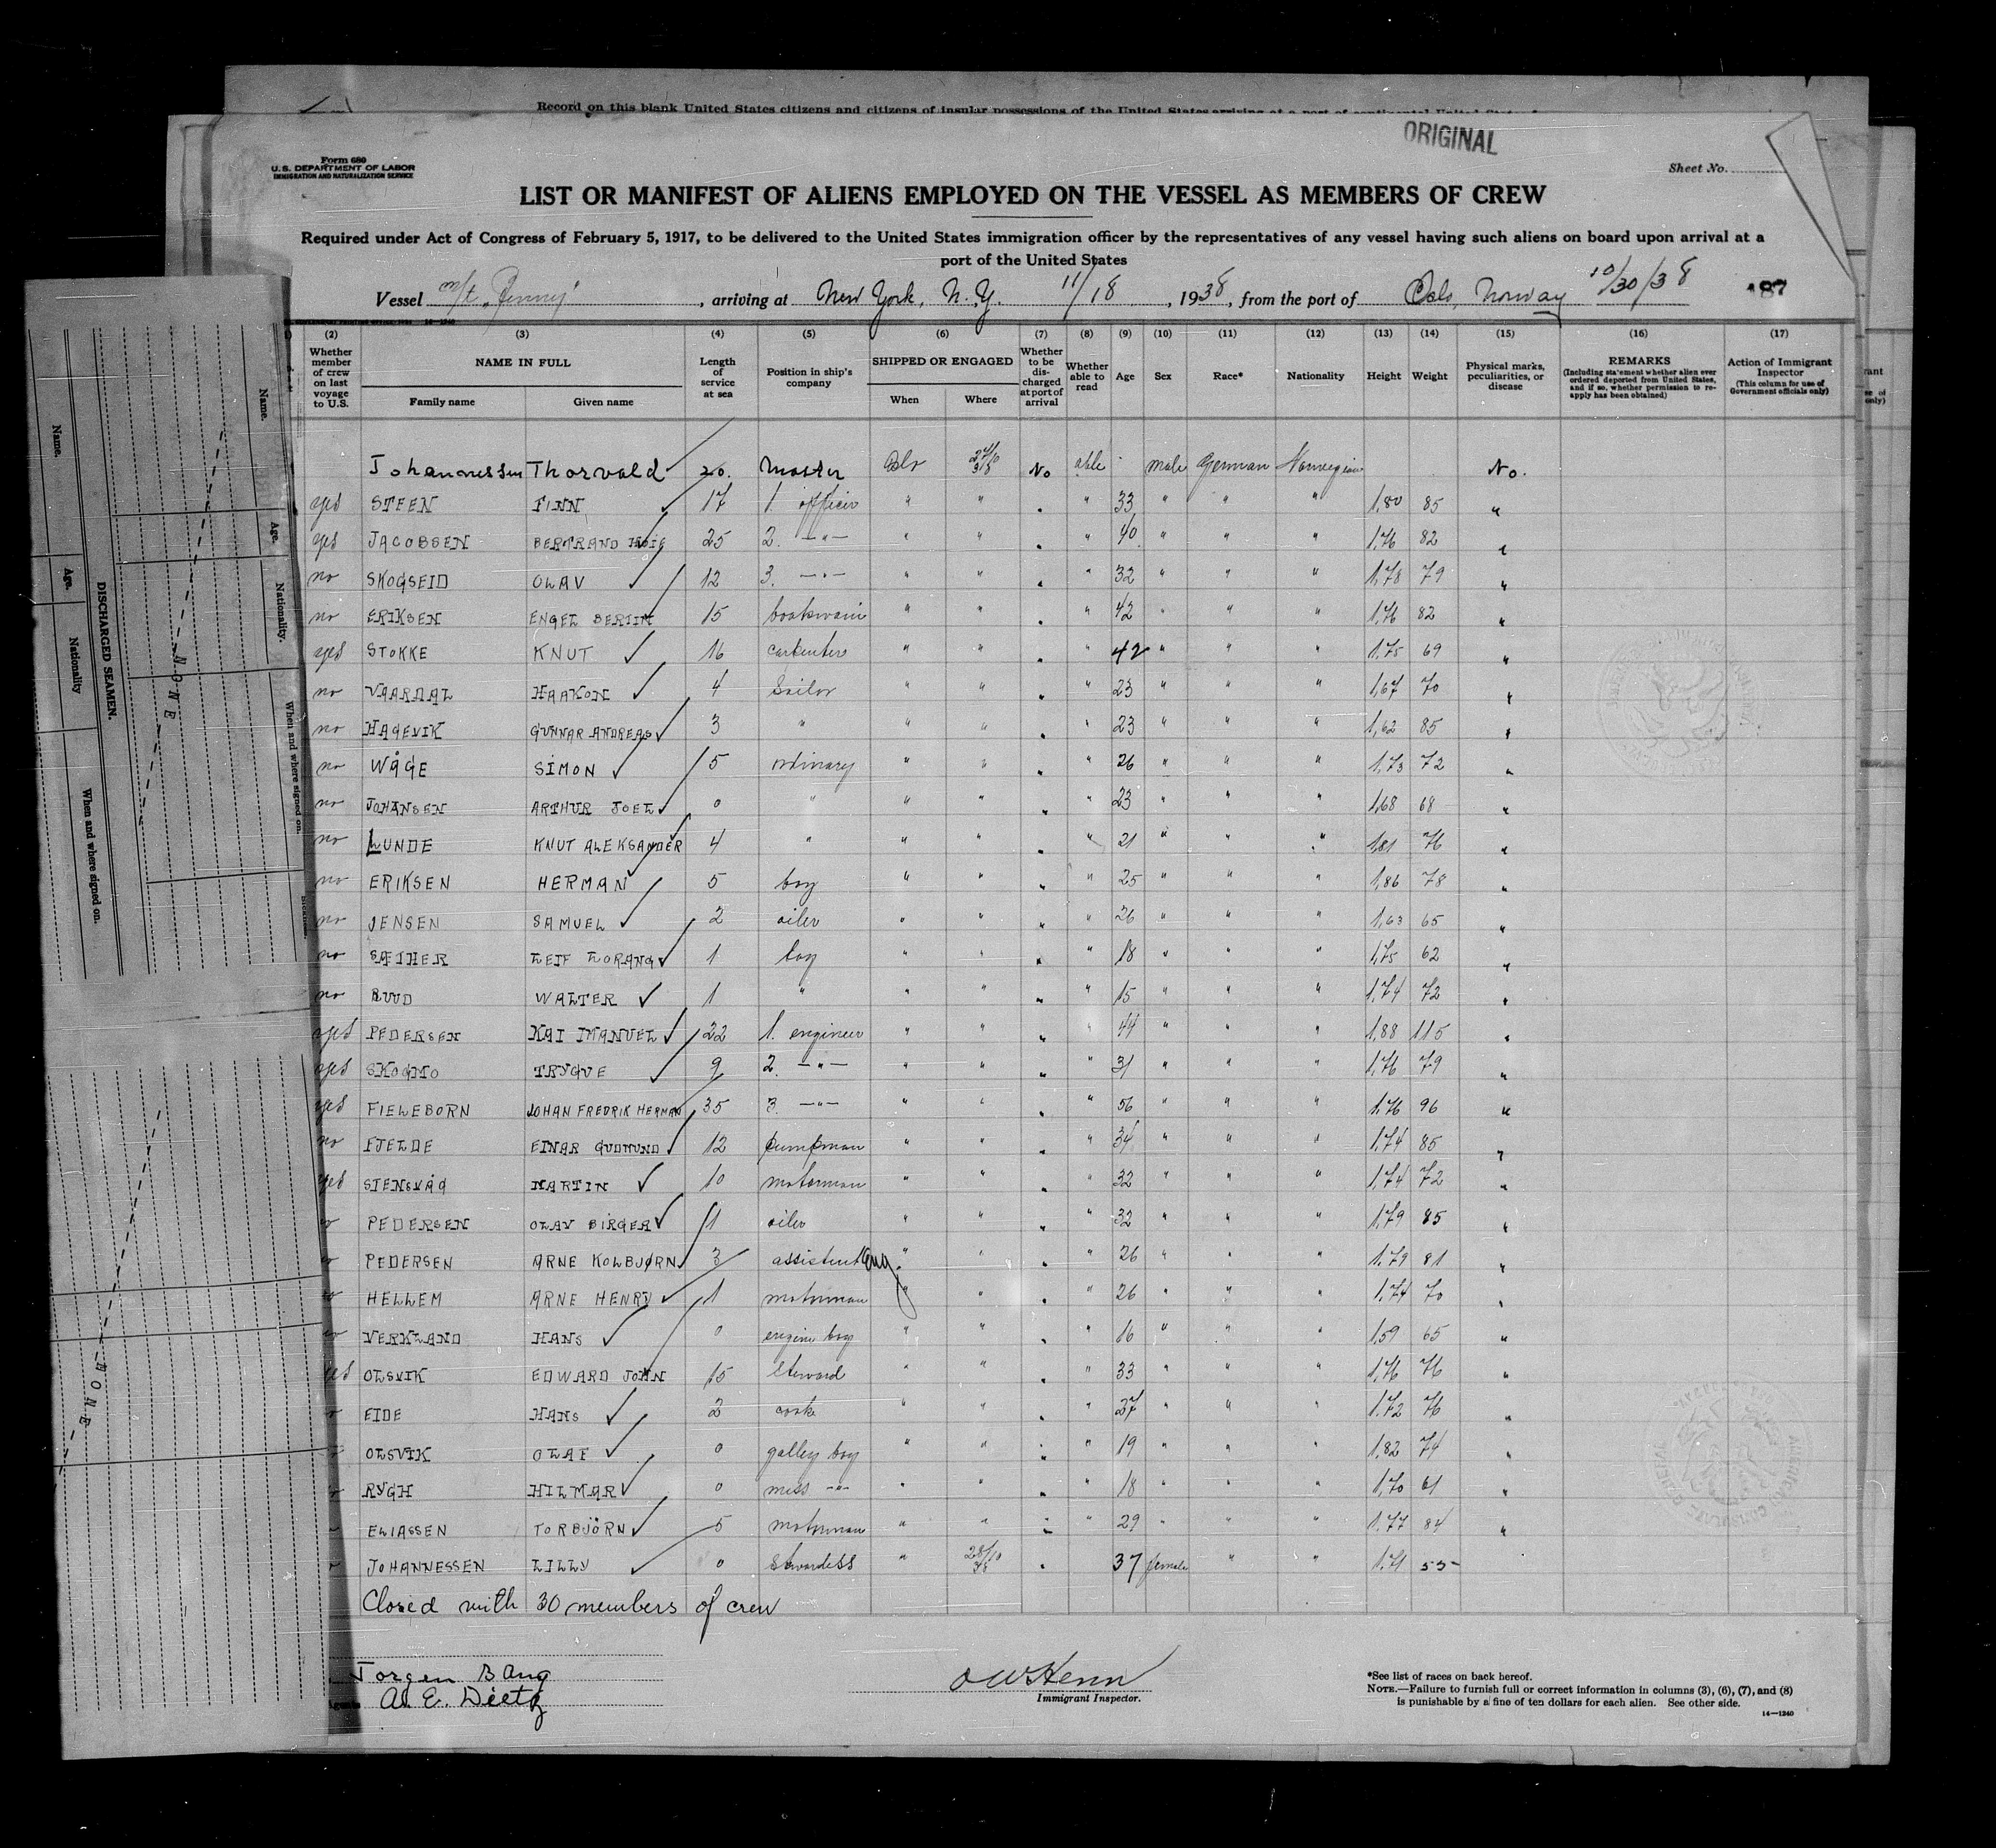 Record on this blank United States citizens and citizens of insular possessions of the United States arriving at a port of continental United States
ORIGINAL
Form 680
U.S. DEPARTMENT OF LABOR
IMMIGRATION AND NATURALIZATION SERVICE
Sheet No.
LIST OR MANIFEST OF ALIENS EMPLOYED ON THE VESSEL AS MEMBERS OF CREW
Required under Act of Congress of February 5, 1917, to be delivered to the United States immigration officer by the representatives of any vessel having such aliens on board upon arrival at a
port of the United States
Vessel m/t , arriving at New York, N.Y. 11/18, 1938, from the port of Oslo, Norway 10/30/38 187
(2) (3) (4) (5) (6) (7) (8) (9) (10) (11) (12) (13) (14) (15) (16) (17)
Whether member of crew on last voyage to U.S. NAME IN FULL Family name Given name Length of service at sea Position in ship's company SHIPPED OR ENGAGED When Where Whether to be discharged at port of arrival Whether able to read Age Sex Race* Nationality Height Weight Physical marks, peculiarities, or disease REMARKS (Including statement whether alien ever ordered deported from United States, and if so, whether permission to reapply has been obtained) Action of Immigrant Inspector (This column for use of Government officials only)
Johannessen Thorvald 20. Master Oslo 27/10 38 No able male German Norwegian No.
yes STEEN FINN 17 1. officer " " " 33 " " " 1,80 85 "
yes JACOBSEN BERTRAND 25 2. —"— " " " 40 " " " 1,76 82 "
no SKOGSEID OLAV 12 3. —"— " " " 32 " " " 1,78 79 "
no ERIKSEN ENGEL BERTIN 15 boatswain " " " 42 " " " 1,76 82 "
yes STOKKE KNUT 16 carpenter " " " 42 " " " 1,75 69 "
no VAARDAL HAAKON 4 Sailor " " " 23 " " " 1,67 70 "
no HAGEVIK GUNNAR ANDREAS 3 " " " " 23 " " " 1,62 85 "
no WÅGE SIMON 5 ordinary " " " 26 " " " 1,73 72 "
no JOHANSEN ARTHUR JOEL 0 " " " " 23 " " " 1,68 68 "
no LUNDE KNUT ALEKSANDER 4 " " " " 21 " " " 1,81 76 "
no ERIKSEN HERMAN 5 boy " " " 25 " " " 1,86 78 "
no JENSEN SAMUEL 2 oiler " " " 26 " " " 1,63 65 "
no SÆTHER LEIF LORANG 1 boy " " " 18 " " " 1,75 62 "
no RUUD WALTER 1 " " " " 15 " " " 1,74 72 "
yes PEDERSEN KAI IMANUEL 22 1. engineer " " " 44 " " " 1,88 115 "
yes SKOGMO TRYGVE 9 2. —"— " " " 31 " " " 1,76 79 "
yes FIELEBORN JOHAN FREDRIK HERMAN 35 3. —"— " " " 56 " " " 1,76 96 "
no FJELDE EINAR GUDMUND 12 pumpman " " " 34 " " " 1,74 85 "
yes STENSVÅG MARTIN 10 motorman " " " 32 " " " 1,74 72 "
PEDERSEN OLAV BIRGER 1 oiler " " " 32 " " " 1,79 85 "
PEDERSEN ARNE KOLBJØRN 3 assistent Eng. " " " 26 " " " 1.79 81 "
HELLEM ARNE HENRY 1 motorman " " " 26 " " " 1,74 70 "
VERKLAND HANS 0 engine boy " " " 16 " " " 1,59 65 "
yes OLSVIK EDWARD JOHN 15 Steward " " " 33 " " " 1,76 76 "
EIDE HANS 2 cook " " " 27 " " " 1.72 76 "
OLSVIK OLAF 0 galley boy " " " 19 " " " 1,82 74 "
RYGH HILMAR 0 mess —"— " " " 18 " " " 1,70 61 "
ELIASSEN TORBJÖRN 5 motorman " " " 29 " " " 1,77 84 "
JOHANNESSEN LILLY 0 Stewardess " 28/10 38 37 female " " 1.71 55
Closed with 30 members of crew
Jorgen Bang
A. E. Dietz
Immigrant Inspector.
*See list of races on back hereof.
NOTE.—Failure to furnish full or correct information in columns (3), (6), (7), and (8)
is punishable by a fine of ten dollars for each alien. See other side.
14—1240
DISCHARGED SEAMEN.
Name. Age. Nationality When and where signed on.
Name. Age. Nationality. When and where signed on.
NONE
NONE